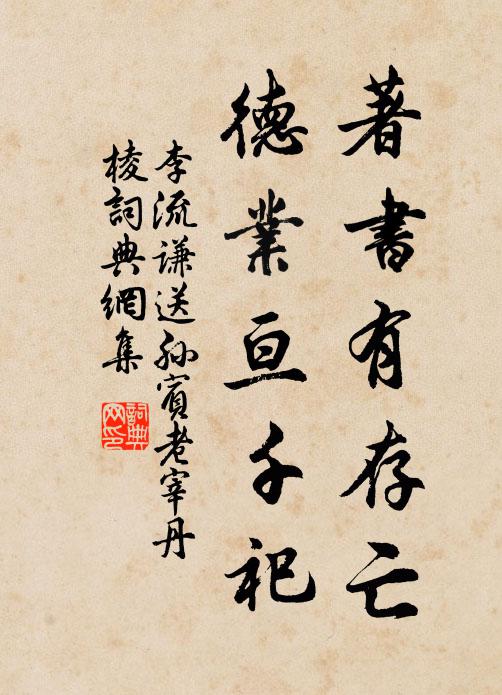 著書有存亡
德業亘千祀
李流謙送孙賓老宰丹
棱詞典網集
詞典
网印